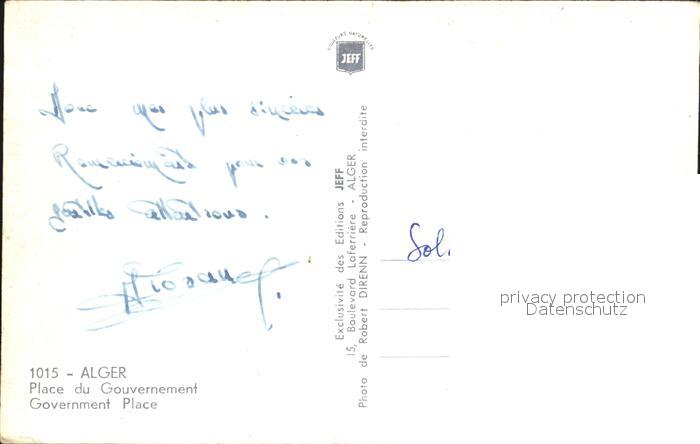 COULEURS NATURELLES
JEFF
Avec mes plus sincères
Remerciements pour vos
gentilles attentions.
Exclusivité des Editions JEFF
15, Boulevard Laferrière - ALGER
Photo de Robert DIRENN - Reproduction interdite
Sol.
privacy protection
Datenschutz
1015 - ALGER
Place du Gouvernement
Government Place